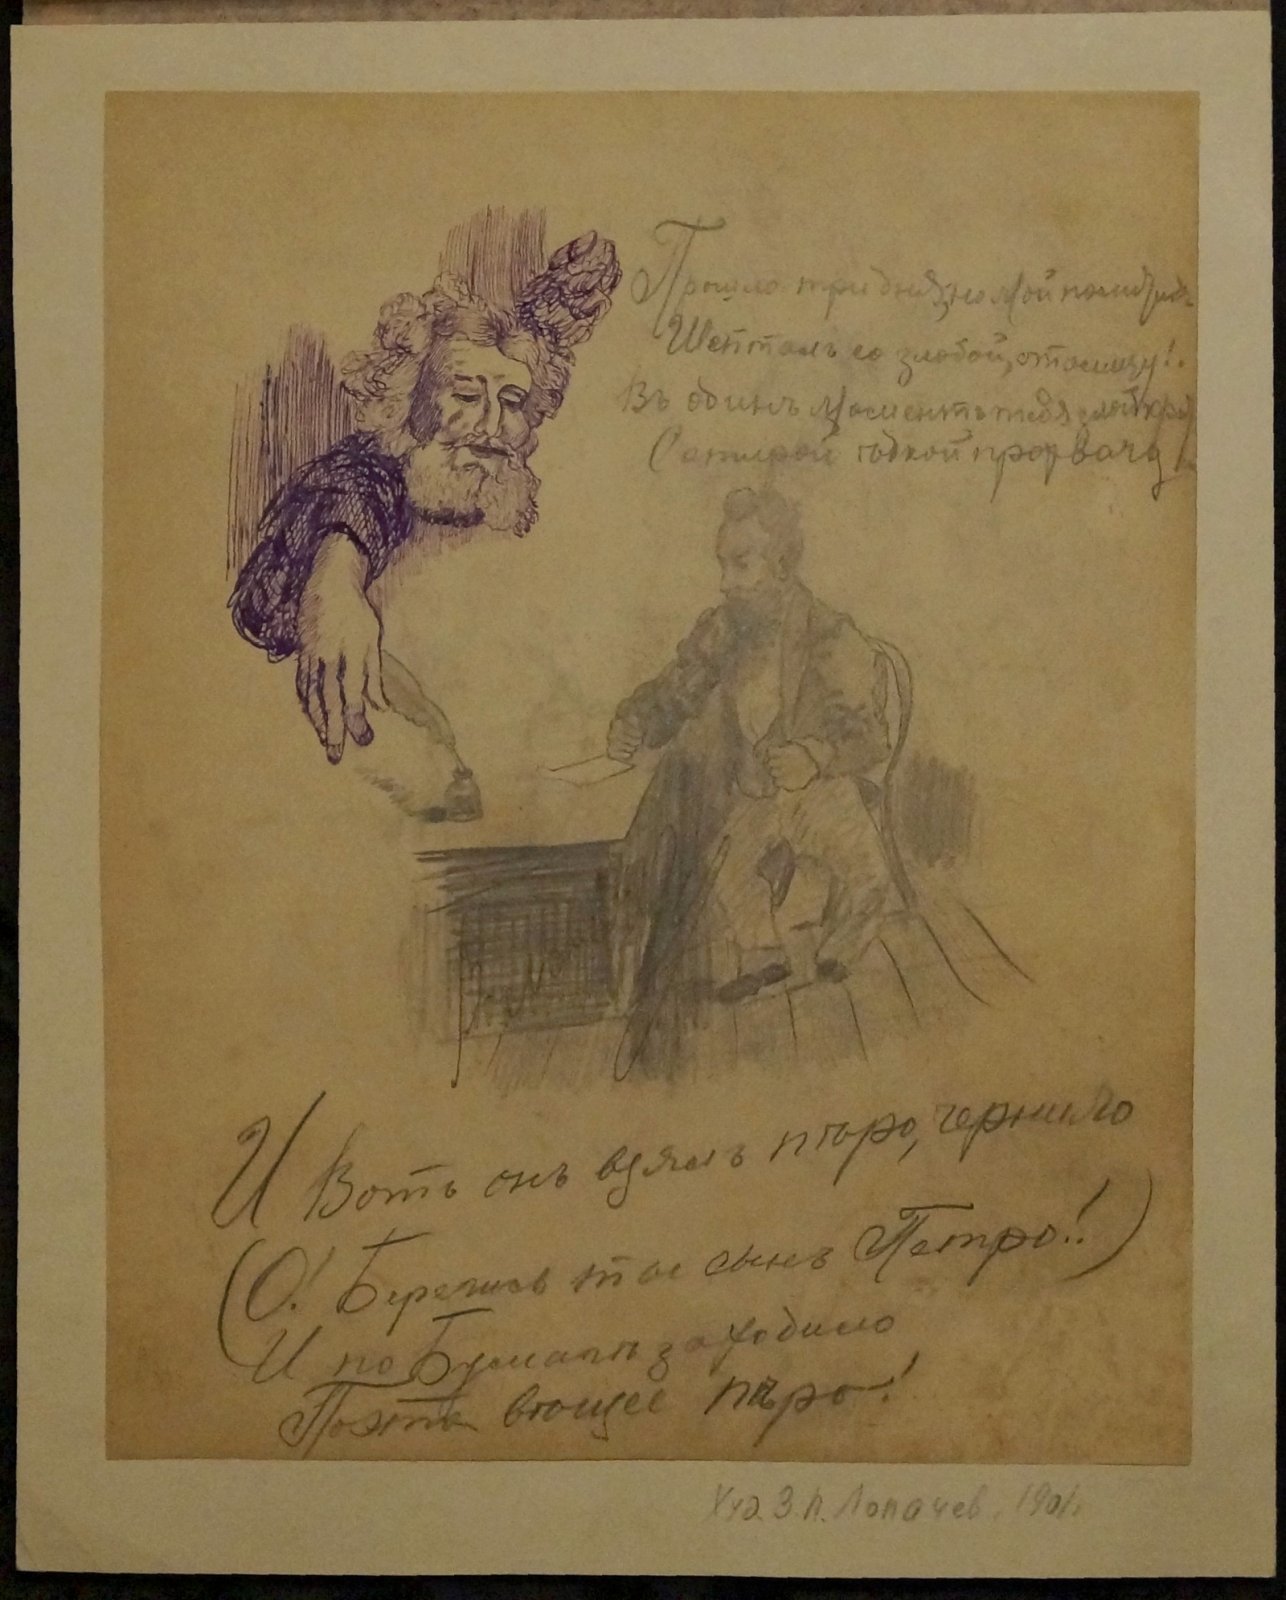 Прошло три дня, но мой
Шепталъ со злобой, отомщу!.
Въ одинъ моментъ тебя
Сатирой гадкой
И Вотъ онъ взялъ пѣро, чернило
(О! Берегись ты сынъ Петро!.)
И по Бумагѣ заходило
Поэта вющее пѣро!
Худ. З.П. Лопачев. 190